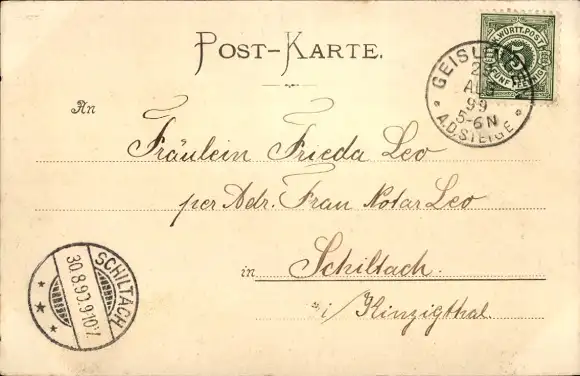 POST-KARTE.
K. WÜRTT. POST
5
FÜNF PFENNIG
GEISLINGEN
29
AUG
99
5-6 N
A.D. STEIGE
An
Fräulein Frieda Leo
per Adr. Frau Notar Leo
in Schiltach.
i/ Kinzigthal.
SCHILTACH
30.8.99.9-10V.